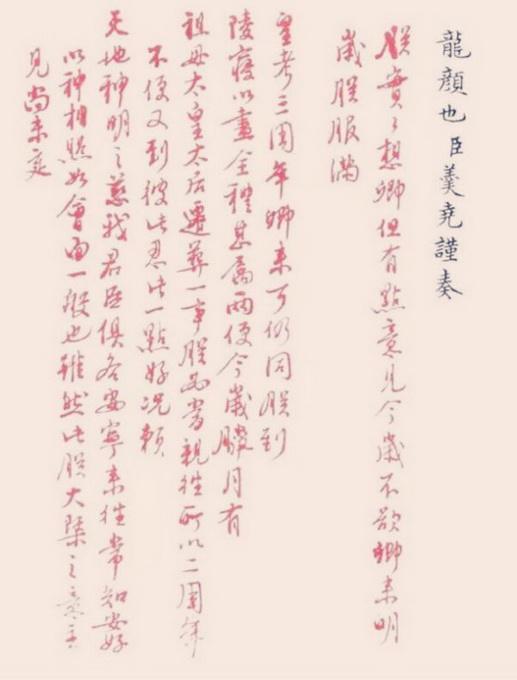 龍顏也臣羹堯謹奏
朕實實想卿但有點意見今歲不欲卿來明
歲朕服滿
皇考三周年卿來可仍同朕到
陵寢以盡全禮甚屬兩便今歲臘月有
祖母太皇太后遷葬一事朕必當親往所以二周年
不便又到彼此忍此一點好況賴
天地神明之慈我君臣俱各安寧來往常知安好
以神相照如會面一般也雖然此朕大槩之意主
見尚未定